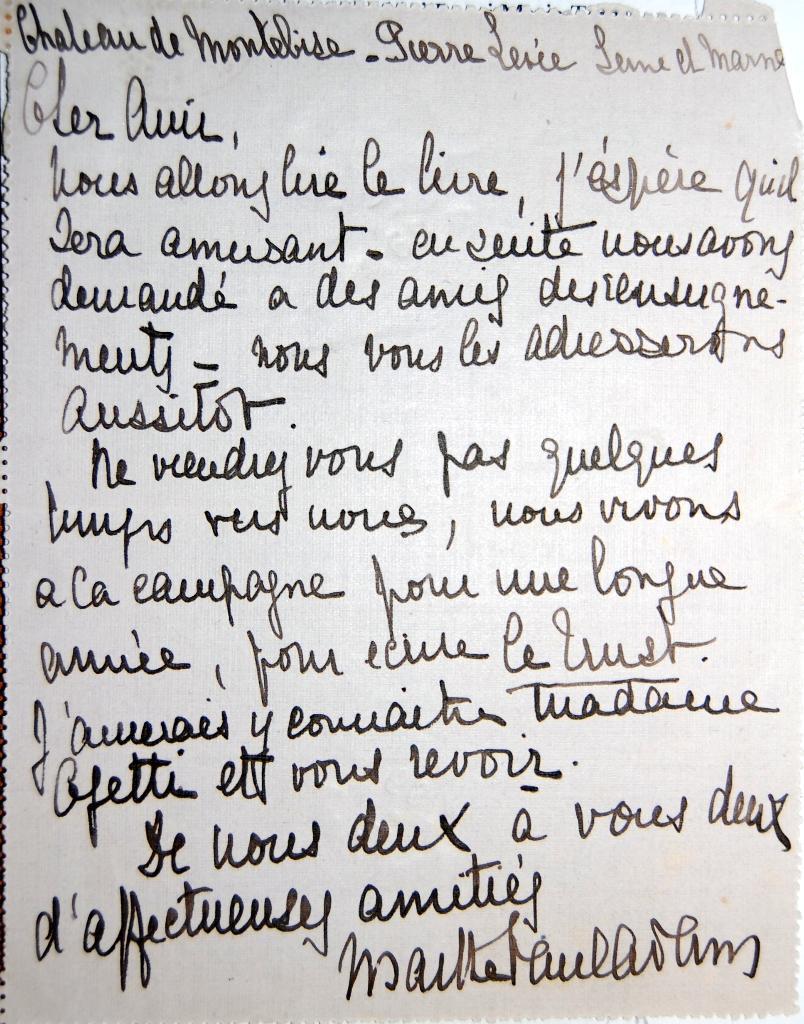 Chateau de Montebise - Pierre Levée Seine et Marne
Cher Ami,
nous allons lire le livre, j'éspère qu'il
sera amusant - ensuite nous avons
demandé a des amis des renseigne-
ments - nous vous les adresserons
aussitôt.
Ne viendrez vous pas quelques
temps vers nous, nous vivons
a la campagne pour une longue
année, pour ecrire le Trust.
J'aimerais y connaitre Madame
et vous revoir.
De nous deux à vous deux
d'affectueuses amitiés
Marthe Paul Adam